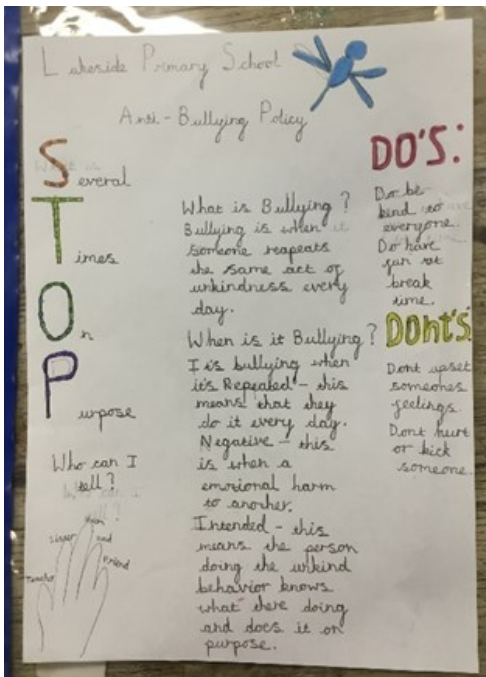 Lakeside Primary School
Anti-Bullying Policy
Several
Times
On
Purpose
Who can I
tell?
Teacher
Mum
Dad
Friend
What is Bullying?
Bullying is when
someone reapeats
the same act of
unkindness every
day.
When is it Bullying?
It is bullying when
it's Repeated - this
means that they
do it every day.
Negative - this
is when a
emotional harm
to another.
Intended - this
means the person
doing the unkind
behavior knows
what there doing
and does it on
purpose.
DO'S:
Do be
kind to
everyone.
Do have
fun at
break
time.
DOnt'S:
Dont upset
someones
feelings.
Dont hurt
or kick
someone.